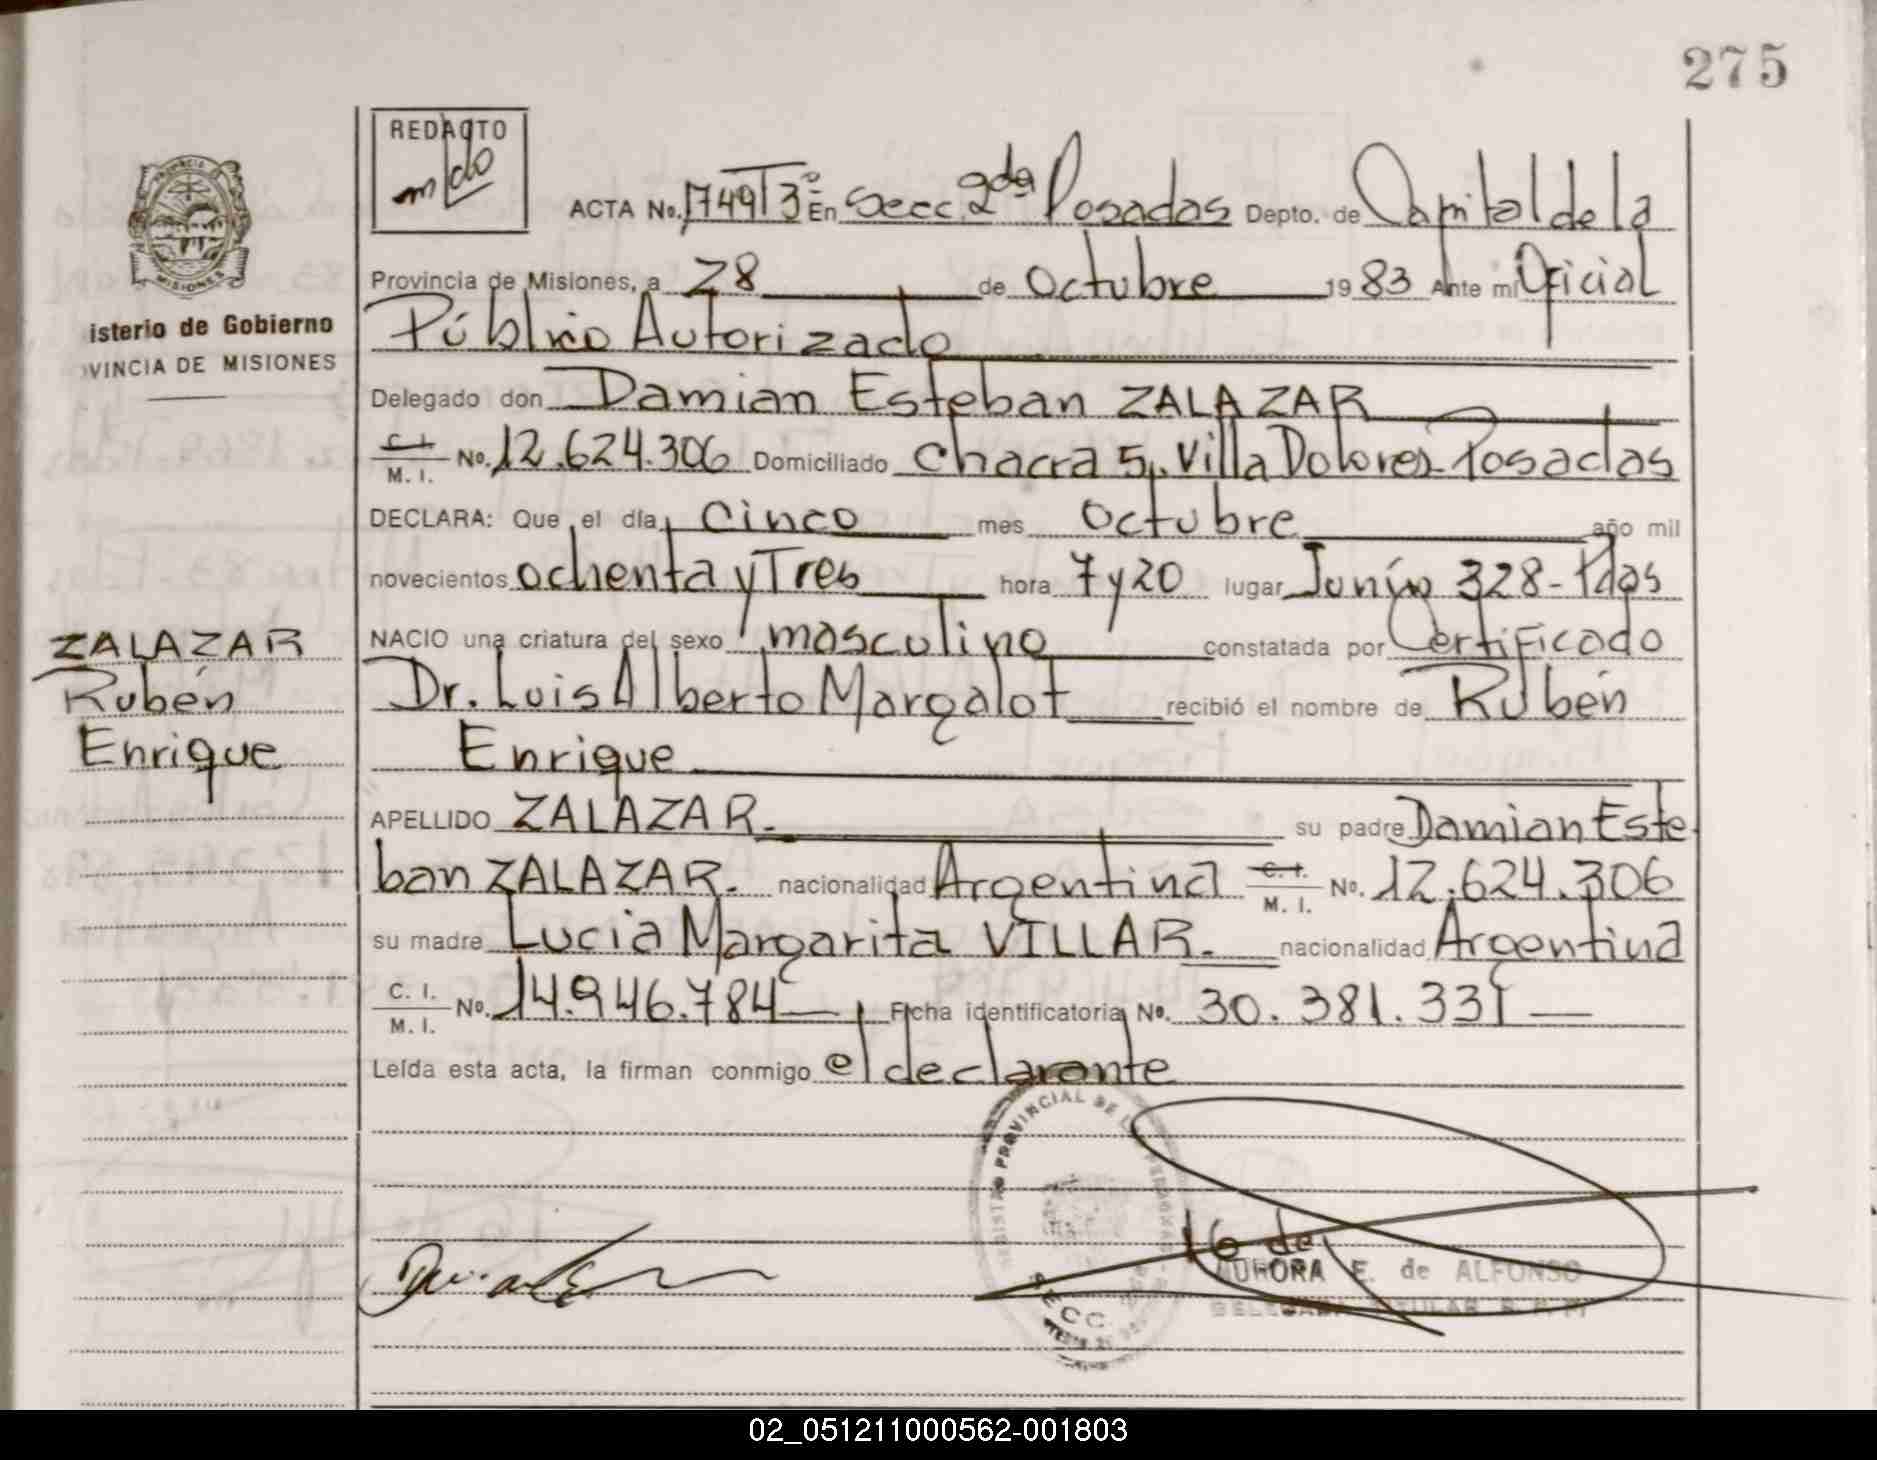 275
REDACTO
ACTA No. 1749 T 3º En Secc. 2da Posadas Depto. de Capital de la
Provincia de Misiones, a 28 de Octubre 1983 Ante mi Oficial
isterio de Gobierno
Público Autorizado
VINCIA DE MISIONES
Delegado don Damian Esteban ZALAZAR
C. I. M. I. No. 12.624.306 Domiciliado Chacra 5, Villa Dolores Posadas
DECLARA: Que el día cinco mes Octubre año mil
novecientos ochenta y Tres hora 7 y 20 lugar Junín 328 - Pdas
NACIO una criatura del sexo masculino constatada por Certificado
Dr. Luis Alberto Margalot recibió el nombre de Rubén
Enrique
ZALAZAR
Rubén
Enrique
APELLIDO ZALAZAR.- su padre Damian Este
ban ZALAZAR. nacionalidad Argentina C. I. M. I. No. 12.624.306
su madre Lucia Margarita VILLAR.- nacionalidad Argentina
C. I. M. I. No. 14.946.784 Ficha identificatoria No. 30.381.331
Leída esta acta, la firman conmigo el declarante
REGISTRO PROVINCIAL DE L PERSONAS
SECC
AURORA E. de ALFONSO
02_051211000562-001803